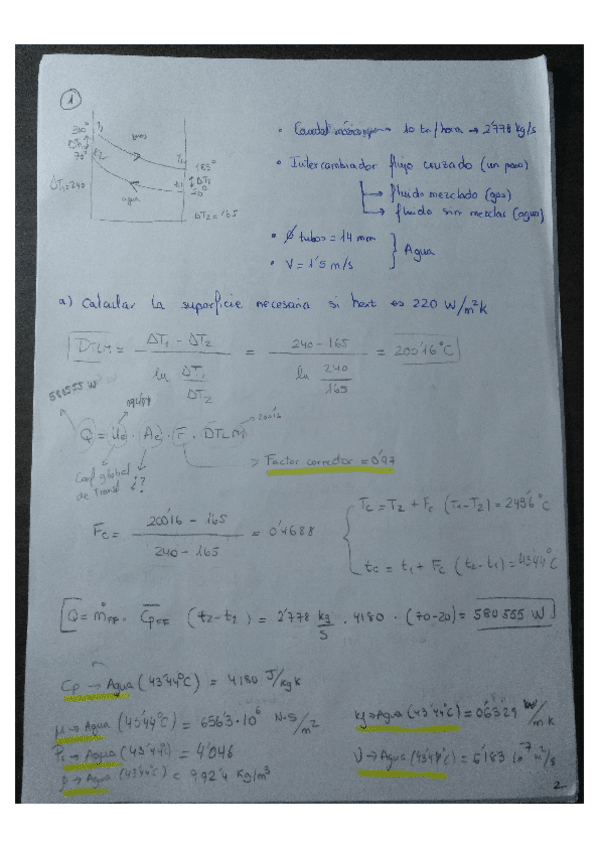 1
310° T1 gases T2 185°
ΔT1 70° t2 ↕ΔT2
ΔT1=240 agua t1 20°
ΔT2=165
• Caudal → 10 tn/hora → 2'778 kg/s
• Intercambiador flujo cruzado (un paso)
→ fluido mezclado (gas)
→ fluido sin mezclar (agua)
• Ø tubos = 14 mm
• V = 1'5 m/s } Agua
a) Calcular la superficie necesaria si hext ⇔ 220 W/m²k
DTLM = ΔT1 - ΔT2 / ln ΔT1/ΔT2 = 240 - 165 / ln 240/165 = 200'16°C
580555 W 200'16
Q = Uc · Ac · F · DTLM
→ Factor corrector = 0'97
Coef global de Transf ¿?
Fc = 200'16 - 165 / 240 - 165 = 0'4688
Tc = T2 + Fc (T1-T2) = 243'6°C
tc = t1 + Fc (t2-t1) = 43'44°C
Q = ṁFF · CpFF (t2-t1) = 2'778 kg/s · 4180 · (70-20) = 580555 W
Cp → Agua (43'44°C) = 4180 J/kg k
μ → Agua (43'44°C) = 656'3·10⁻⁶ N·S/m²
kf → Agua (43'44°C) = 0'6329 W/m k
Pr → Agua (43'44°C) = 4'046
ν → Agua (43'44°C) = 6'183 10⁻⁷ m²/s
ρ → Agua (43'44°C) = 992'4 Kg/m³
2